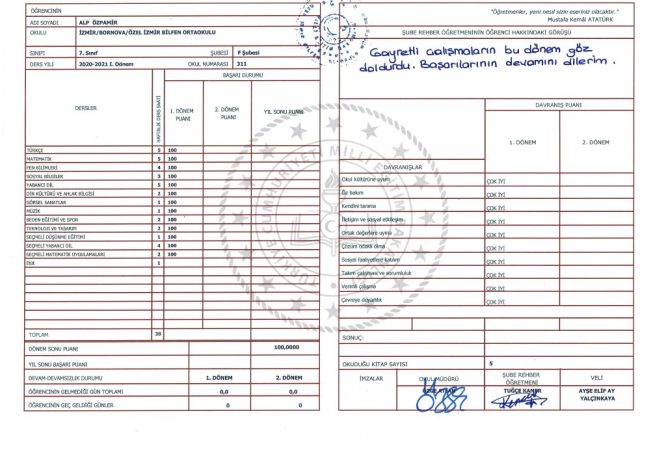 ÖĞRENCİNİN
ADI SOYADI ALP ÖZPAHİR
OKULU İZMİR/BORNOVA/ÖZEL İZMİR BİLFEN ORTAOKULU
SINIFI 7. Sınıf ŞUBESİ F Şubesi
DERS YILI 2020-2021 I. Dönem OKUL NUMARASI 311
BAŞARI DURUMU
DERSLER HAFTALIK DERS SAATİ 1. DÖNEM PUANI 2. DÖNEM PUANI YIL SONU PUANI
TÜRKÇE 5 100
MATEMATİK 5 100
FEN BİLİMLERİ 4 100
SOSYAL BİLGİLER 3 100
YABANCI DİL 5 100
DİN KÜLTÜRÜ VE AHLAK BİLGİSİ 2 100
GÖRSEL SANATLAR 1 100
MÜZİK 1 100
BEDEN EĞİTİMİ VE SPOR 2 100
TEKNOLOJİ VE TASARIM 2 100
SEÇMELİ DÜŞÜNME EĞİTİMİ 1 100
SEÇMELİ YABANCI DİL 4 100
SEÇMELİ MATEMATİK UYGULAMALARI 2 100
1
TOPLAM 38
DÖNEM SONU PUANI 100,0000
YIL SONU BAŞARI PUANI
DEVAM-DEVAMSIZLIK DURUMU 1. DÖNEM 2. DÖNEM
ÖĞRENCİNİN GELMEDİĞİ GÜN TOPLAMI 0,0 0,0
ÖĞRENCİNİN GEÇ GELDİĞİ GÜNLER 0 0
"Öğretmenler, yeni nesil sizin eseriniz olacaktır."
Mustafa Kemâl ATATÜRK
ŞUBE REHBER ÖĞRETMENİNİN ÖĞRENCİ HAKKINDAKİ GÖRÜŞÜ
Gayretli çalışmaların bu dönem göz
doldurdu. Başarılarının devamını dilerim.
DAVRANIŞ PUANI
DAVRANIŞLAR 1. DÖNEM 2. DÖNEM
Okul kültürüne uyum ÇOK İYİ
Öz bakım ÇOK İYİ
Kendini tanıma ÇOK İYİ
İletişim ve sosyal etkileşim ÇOK İYİ
Ortak değerlere uyma ÇOK İYİ
Çözüm odaklı olma ÇOK İYİ
Sosyal faaliyetlere katılım ÇOK İYİ
Takım çalışması ve sorumluluk ÇOK İYİ
Verimli çalışma ÇOK İYİ
Çevreye duyarlılık ÇOK İYİ
SONUÇ:
OKUDUĞU KİTAP SAYISI 5
İMZALAR OKUL MÜDÜRÜ ŞUBE REHBER ÖĞRETMENİ VELİ
TUĞÇE KANIR AYŞE ELİF AY YALÇINKAYA
TÜRKİYE CUMHURİYETİ MİLLİ EĞİTİM BAKANLIĞI